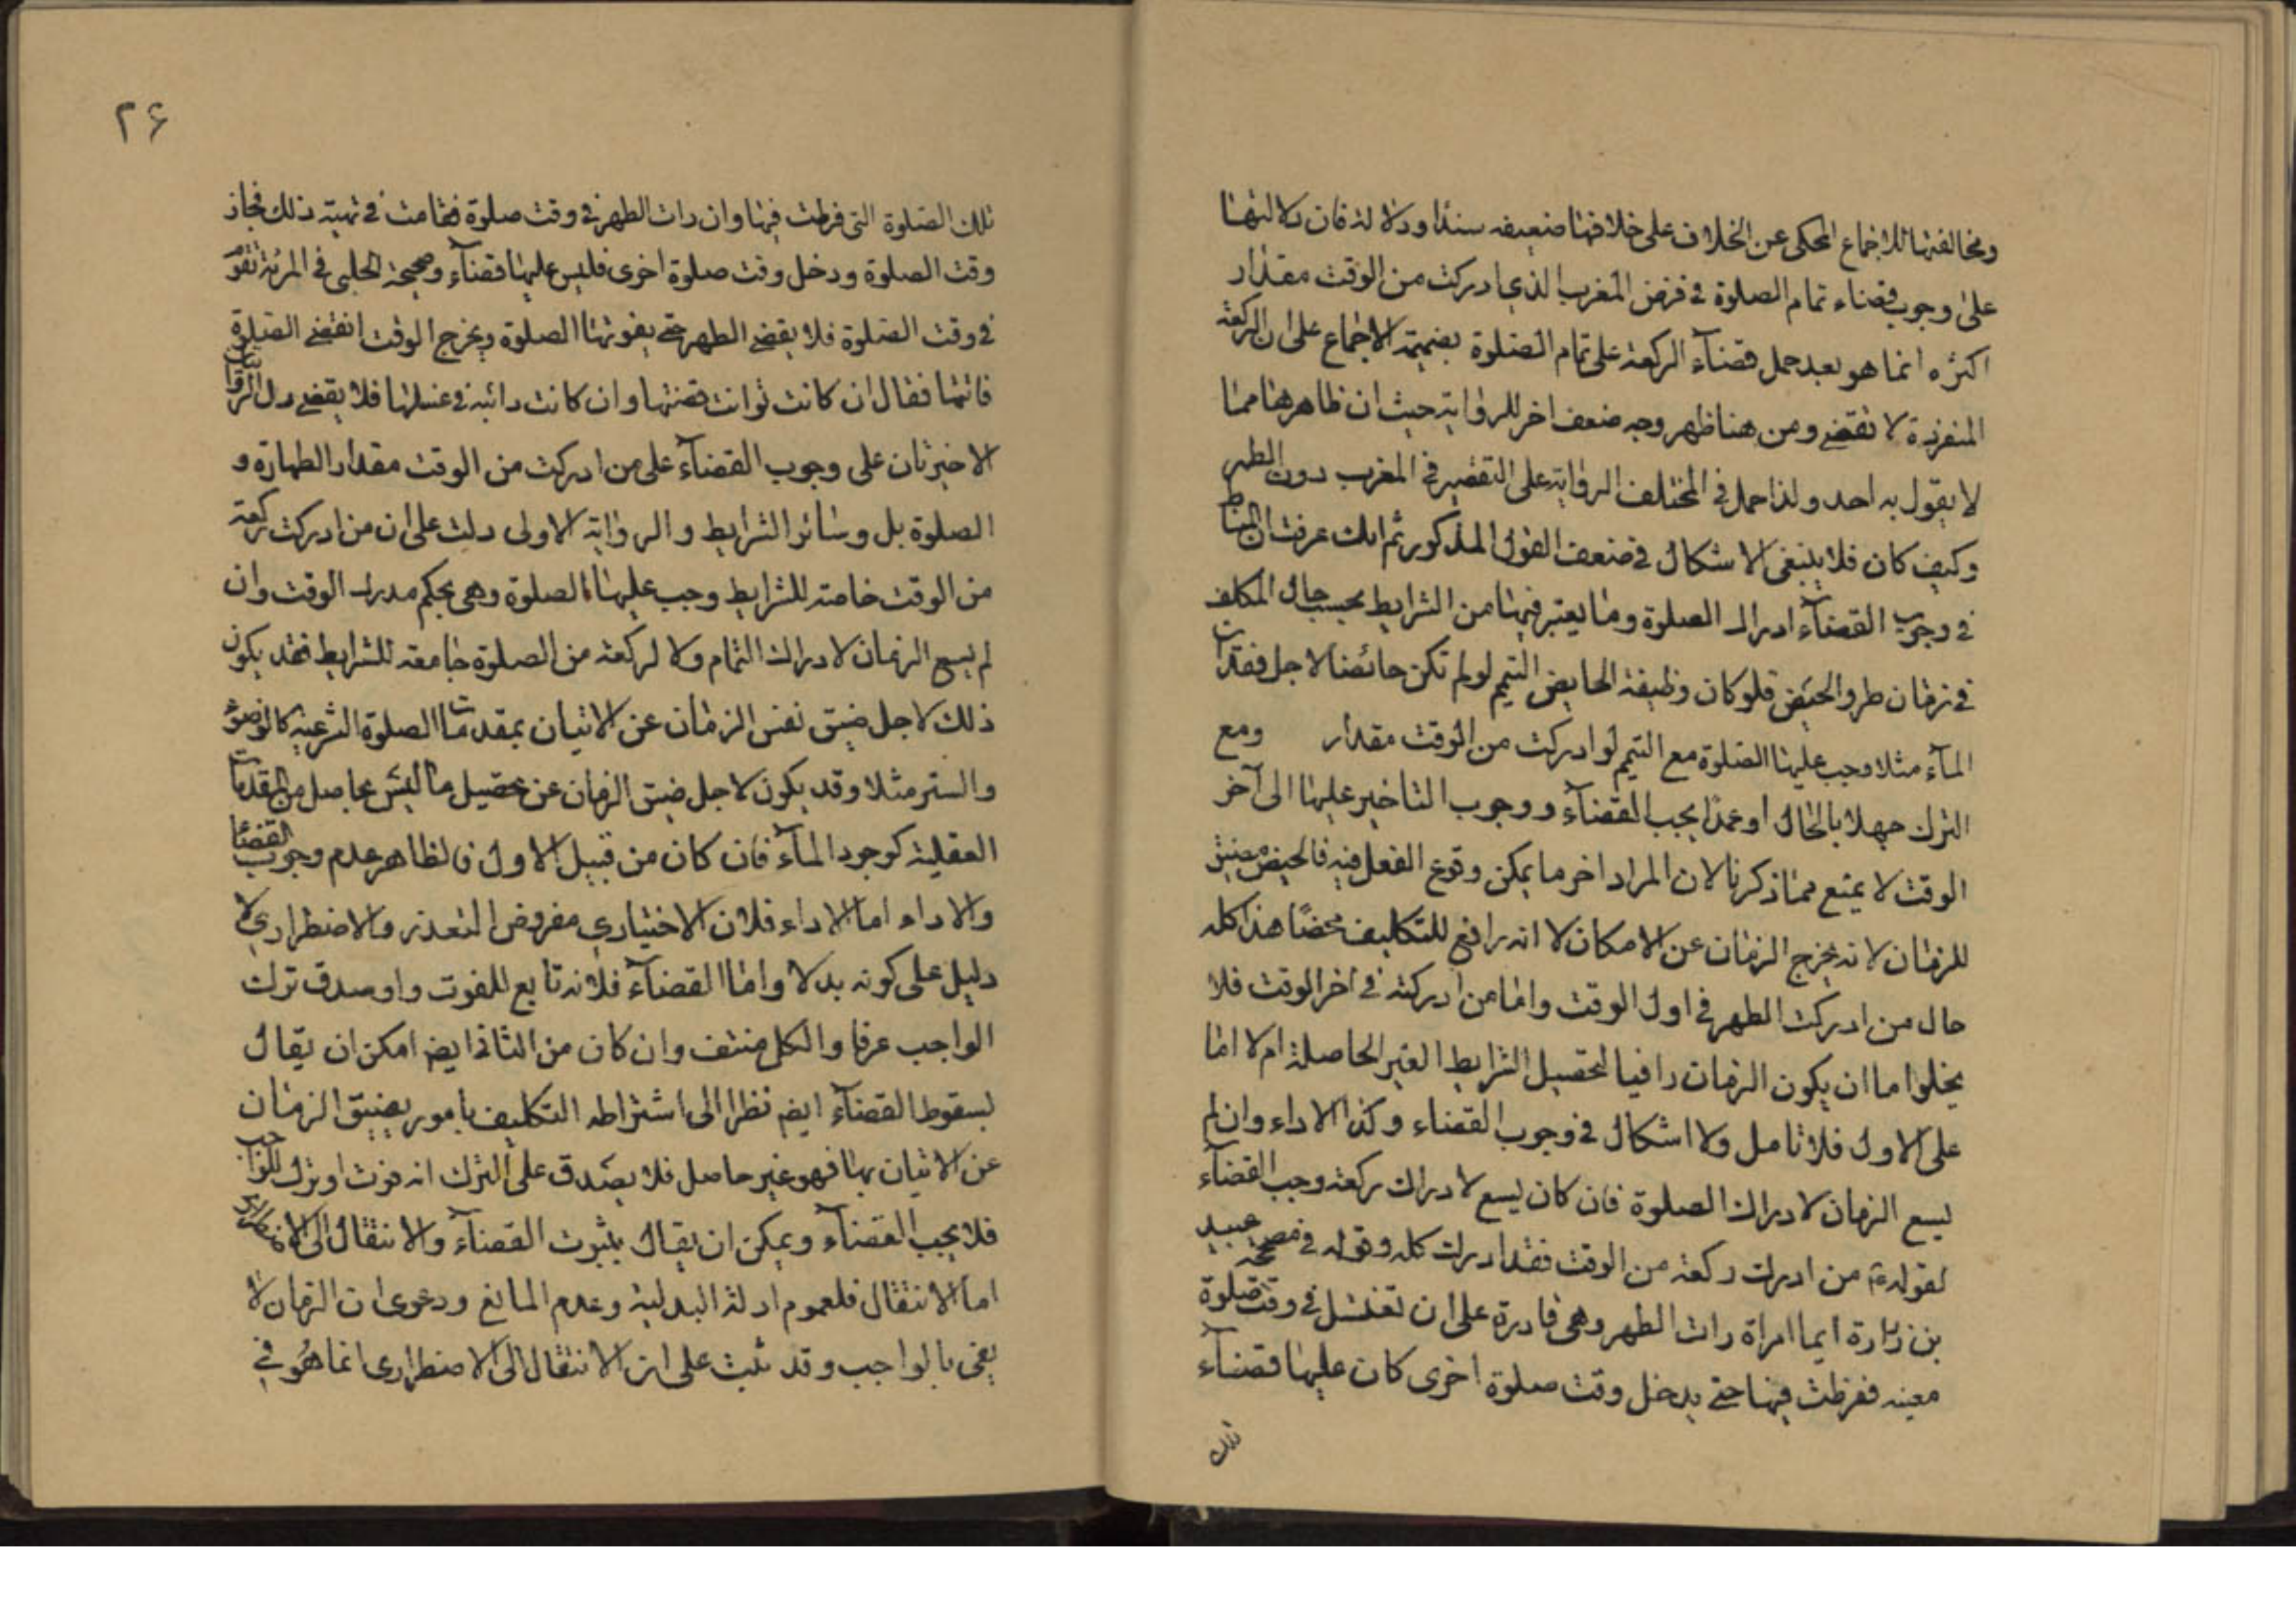 ومخالفتها للاجماع المحكى عن الخلاف على خلافها ضعيفه سندا ودلالة فان دلالتها
على وجوب قضاء تمام الصلوة فى فرض المغرب الذى ادركت من الوقت مقدار
اكثره انما هو بعد حمل قضاء الركعة على تمام الصلوة بضميمة الاجماع على ان الركعة
المنفردة لا تقضى ومن هنا ظهر وجه ضعف اخر للرواية حيث ان ظاهرها مما
لا يقول به احد ولذا حمل فى المختلف الرواية على التقصير فى المغرب دون الظهر
وكيف كان فلا ينبغى الاشكال فى ضعف القول المذكور ثم انك عرفت ان المناط
فى وجوب القضاء ادراك الصلوة وما يعتبر فيها من الشرايط بحسب حال المكلف
فى زمان طرو الحيض فلو كان وظيفة الحايض التيمم لو لم تكن حائضا لاجل فقدان
الماء مثلا وجب عليها الصلوة مع التيمم لو ادركت من الوقت مقدار ومع
الترك جهلا بالحال او عمدا يجب القضاء ووجوب التاخير عليها الى آخر
الوقت لا يمنع مما ذكرنا لان المراد اخر ما يمكن وقوع الفعل فيه فالحيض مضيق
للزمان لانه يخرج الزمان عن الامكان لا انه رافع للتكليف محضا هذا كله
حال من ادركت الطهر فى اول الوقت واما من ادركته فى اخر الوقت فلا
يخلو اما ان يكون الزمان وافيا لتحصيل الشرايط الغير الحاصلة ام لا اما
على الاول فلا تامل ولا اشكال فى وجوب القضاء وكذا الاداء وان لم
يسع الزمان لادراك الصلوة فان كان يسع لادراك ركعة وجب القضاء
لقوله ع من ادرك ركعة من الوقت فقد ادرك كله وقوله فى صحيحة عبيد
بن زرارة ايما امراة رات الطهر وهى قادرة على ان تغتسل فى وقت صلوة
معينه ففرطت فيها حتى يدخل وقت صلوة اخرى كان عليها قضاء
تلك
۲۶
تلك الصلوة التى فرطت فيها وان رات الطهر فى وقت صلوة فقامت فى تهيئة ذلك فجاز
وقت الصلوة ودخل وقت صلوة اخرى فليس عليها قضاء وصحيحة الحلبى فى المرئة تقوم
فى وقت الصلوة فلا يقضى الطهر حتى يفوتها الصلوة ويخرج الوقت اتقضى الصلوة
فاتتها فقال ان كانت توانت قضتها وان كانت دائبة فى غسلها فلا يقضى دل الروايتان
الاخيرتان على وجوب القضاء على من ادركت من الوقت مقدار الطهارة و
الصلوة بل وسائر الشرايط والرواية الاولى دلت على ان من ادركت ركعة
من الوقت جامعة للشرايط وجب عليها الصلوة وهى بحكم مدرك الوقت وان
لم يسع الزمان لادراك التمام ولا لركعة من الصلوة جامعة للشرايط فقد يكون
ذلك لاجل ضيق نفس الزمان عن الاتيان بمقدمات الصلوة الشرعية كالوضوء
والستر مثلا وقد يكون لاجل ضيق الزمان عن تحصيل ما ليس بحاصل من المقدمات
العقلية كوجود الماء فان كان من قبيل الاول فالظاهر عدم وجوب القضاء
والاداء اما الاداء فلان الاختيارى مفروض التعذر والاضطرارى لا
دليل على كونه بدلا واما القضاء فلانه تابع للفوت ولو صدق ترك
الواجب عرفا والكل منتف وان كان من الثانى ايضا امكن ان يقال
بسقوط القضاء ايضا نظرا الى اشتراطه التكليف بامور يضيق الزمان
عن الاتيان بها فهو غير حاصل فلا يصدق على الترك انه فوت او ترك للواجب
فلا يجب القضاء ويمكن ان يقال بثبوت القضاء والانتقال الى الاضطرارى
اما الانتقال فلعموم ادلة البدلية وعدم المانع ودعوى ان الزمان لا
يفى بالواجب وقد ثبت على ان الانتقال الى الاضطرارى انما هو فى